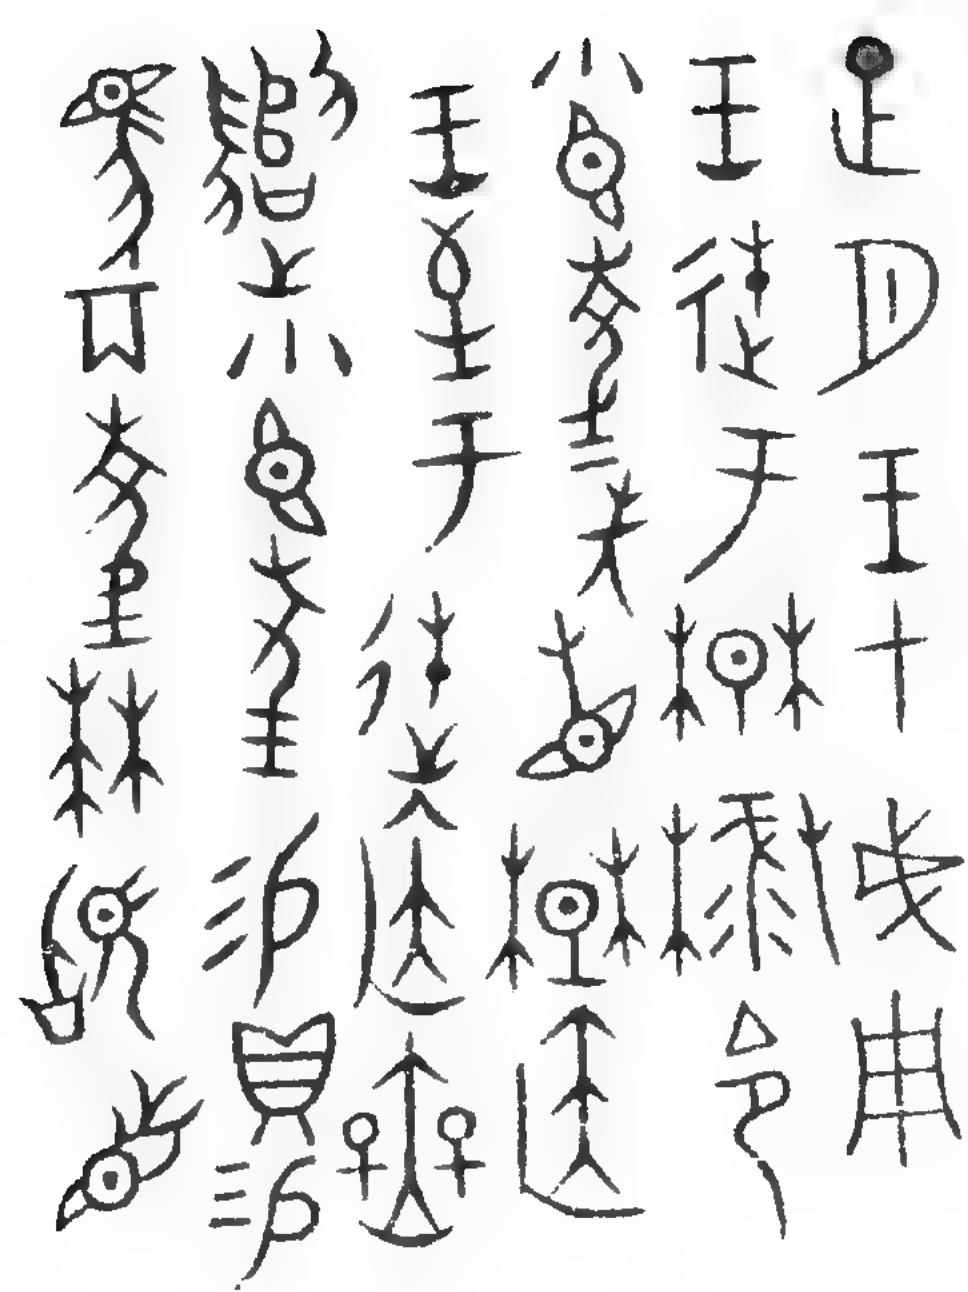 正月王才成周
王徙于楚麓令
小臣夌先省楚应
王至于徙应無
遣小臣夌易貝易
馬丙夌拜𩒨首